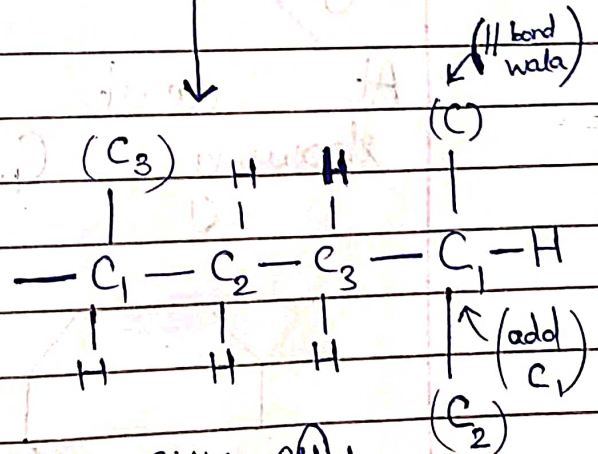 (|| bond
wala)
(C)
(C3) H H
— C1 — C2 — C3 — C1 — H
H H H
(add
C1)
(C2)